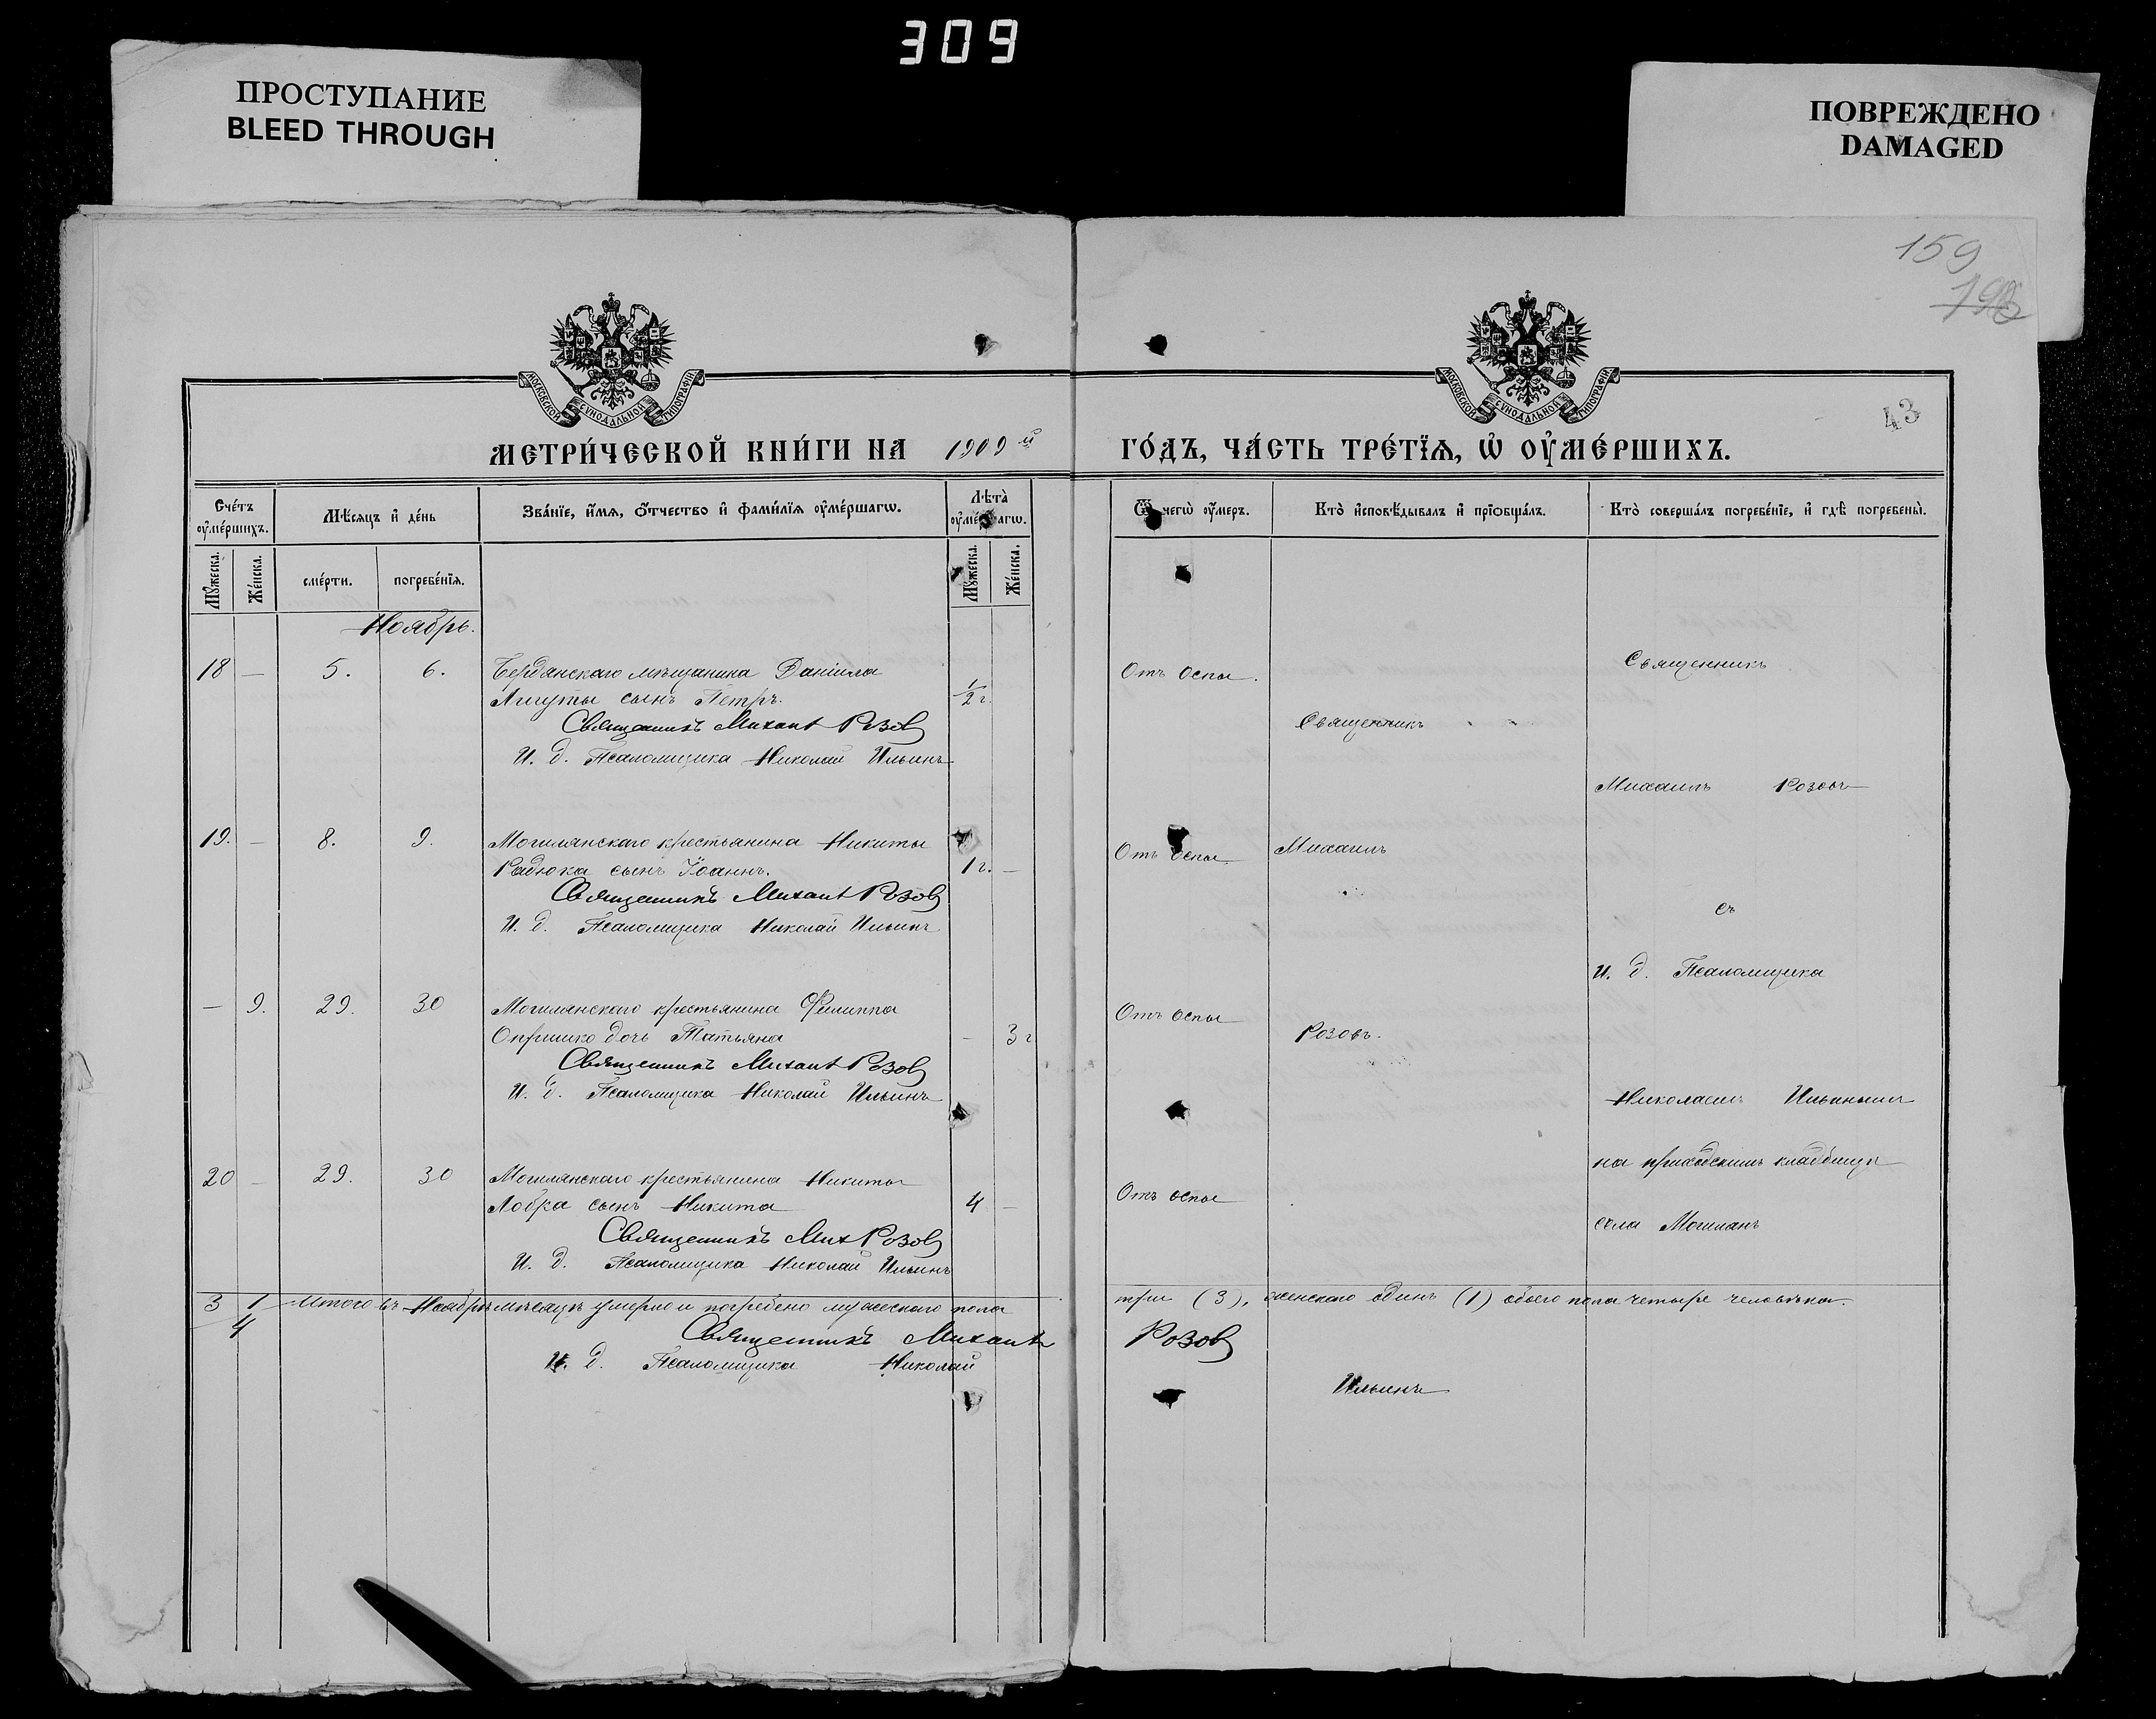 309
ПРОСТУПАНИЕ
BLEED THROUGH
ПОВРЕЖДЕНО
DAMAGED
159
43
МОСКОВСКОЙ СѴНОДАЛЬНОЙ ТИПОГРАФІИ
МОСКОВСКОЙ СѴНОДАЛЬНОЙ ТИПОГРАФІИ
МЕТРИ́ЧЕСКОЙ КНИ́ГИ НА 1909 й ГО́ДЪ, ЧА́СТЬ ТРЕ́ТЇѦ, Ѡ҆ ОУ҆МЕ́РШИХЪ.
Счетъ оумершихъ.
Мѣсяцъ и день
Званїе, имя, отчество и фамилїя оумершагѡ.
Лѣта оумершагѡ.
Ѿ чегѡ оумеръ.
Кто исповѣдывалъ и прїобщалъ.
Кто совершалъ погребенїе, и гдѣ погребены.
Мужеска.
Женска.
смерти.
погребенїя.
Мужеска.
Женска.
Ноябрь.
18 — 5. 6. Бердянскаго мѣщанина Даніила
Лигуты сынъ Петръ. 1/2 г.
Священникъ Михаилъ Розов
И. д. Псаломщика Николай Ильинъ
Отъ оспы.
19. — 8. 9. Могилянскаго крестьянина Никиты
Радюка сынъ Іоаннъ. 1 г. —
Священникъ Михаилъ Розов
И. д. Псаломщика Николай Ильинъ
Отъ оспы.
— 9. 29. 30 Могилянскаго крестьянина Филиппа
Опришко дочь Татьяна — 3 г
Священникъ Михаилъ Розов
И. д. Псаломщика Николай Ильинъ
Отъ оспы
20 — 29. 30 Могилянскаго крестьянина Никиты
Лобка сынъ Никита 4 —
Священникъ Мих Розов
И. д. Псаломщика Николай Ильинъ
Отъ оспы
Священникъ
Михаилъ
Розовъ.
Священникъ
Михаилъ Розовъ
съ
и. д. Псаломщика
Николаемъ Ильинымъ
на приходскомъ кладбищѣ
села Могилянъ
3 1 Итого въ Ноябрѣ мѣсяцѣ умерло и погребено мужескаго пола три (3), женскаго одинъ (1) обоего пола четыре человѣка.
4
Священникъ Михаилъ Розов
И. д. Псаломщика Николай Ильинъ